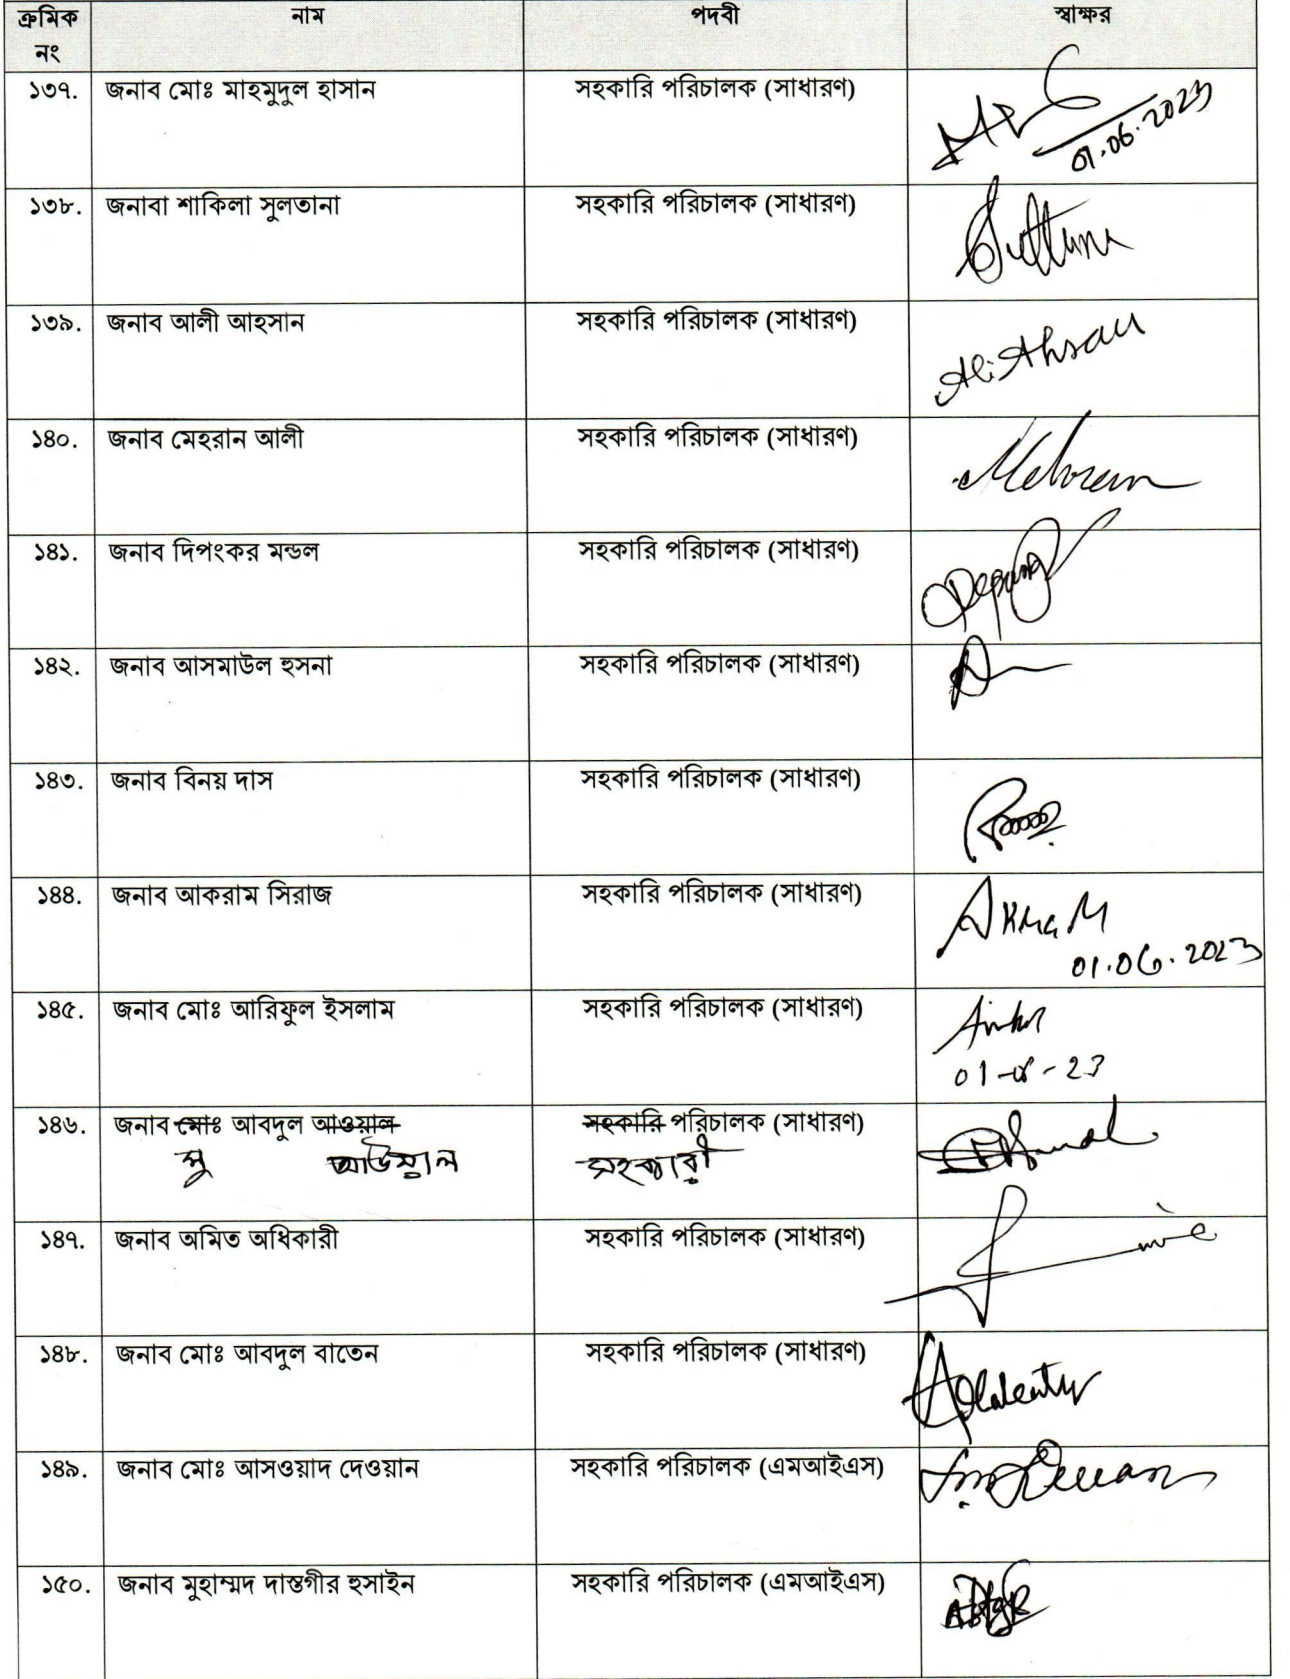 ক্রমিক নং নাম পদবী স্বাক্ষর
১৩৭. জনাব মোঃ মাহমুদুল হাসান সহকারি পরিচালক (সাধারণ)
01.06.2023
১৩৮. জনাবা শাকিলা সুলতানা সহকারি পরিচালক (সাধারণ)
১৩৯. জনাব আলী আহসান সহকারি পরিচালক (সাধারণ) Ali Ahsan
১৪০. জনাব মেহরান আলী সহকারি পরিচালক (সাধারণ) Mehran
১৪১. জনাব দিপংকর মন্ডল সহকারি পরিচালক (সাধারণ)
১৪২. জনাব আসমাউল হুসনা সহকারি পরিচালক (সাধারণ)
১৪৩. জনাব বিনয় দাস সহকারি পরিচালক (সাধারণ)
১৪৪. জনাব আকরাম সিরাজ সহকারি পরিচালক (সাধারণ) AKRaM
01.06.2023
১৪৫. জনাব মোঃ আরিফুল ইসলাম সহকারি পরিচালক (সাধারণ)
১৪৬. জনাব মোঃ আবদুল আওয়াল সহকারি পরিচালক (সাধারণ)
মু আউয়াল সহকারী
১৪৭. জনাব অমিত অধিকারী সহকারি পরিচালক (সাধারণ)
১৪৮. জনাব মোঃ আবদুল বাতেন সহকারি পরিচালক (সাধারণ)
১৪৯. জনাব মোঃ আসওয়াদ দেওয়ান সহকারি পরিচালক (এমআইএস)
১৫০. জনাব মুহাম্মদ দাস্তগীর হুসাইন সহকারি পরিচালক (এমআইএস)